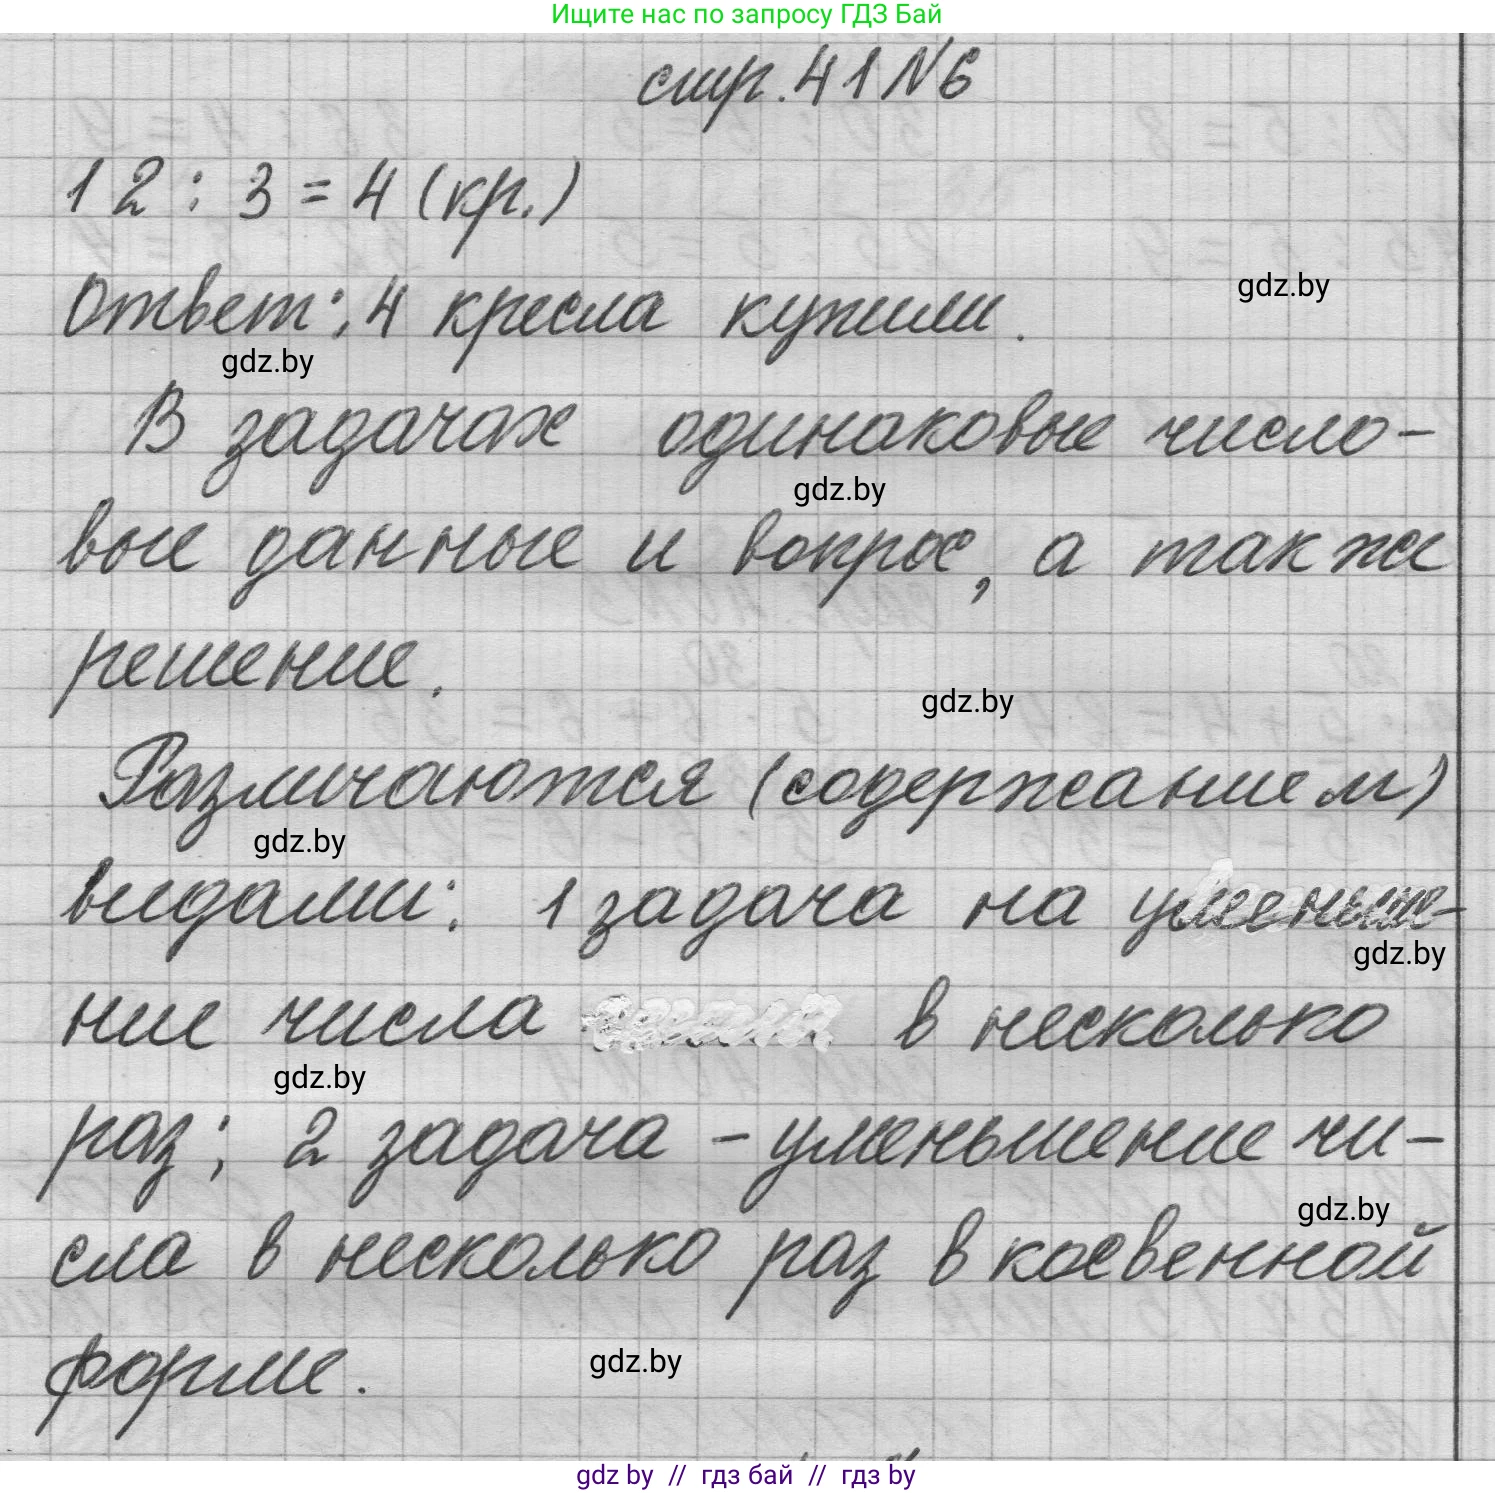 Ищите нас по запросу ГДЗ Бай
стр. 41 №6
12 : 3 = 4 (кр.)
Ответ: 4 кресла купили.
gdz.by
gdz.by
В задачах одинаковые число-
gdz.by
вые данные и вопрос, а также
решение.
gdz.by
Различаются (содержанием)
gdz.by
видами: 1 задача на
gdz.by
ние числа в несколько
gdz.by
раз; 2 задача - уменьшение чи-
gdz.by
сла в несколько раз в косвенной
форме.
gdz.by
gdz by // гдз бай // гдз by